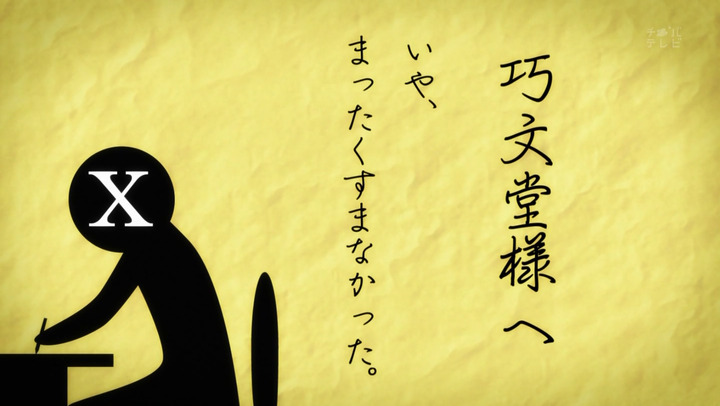 巧文堂様へ
いや、
まったくすまなかった。
X
テレビ